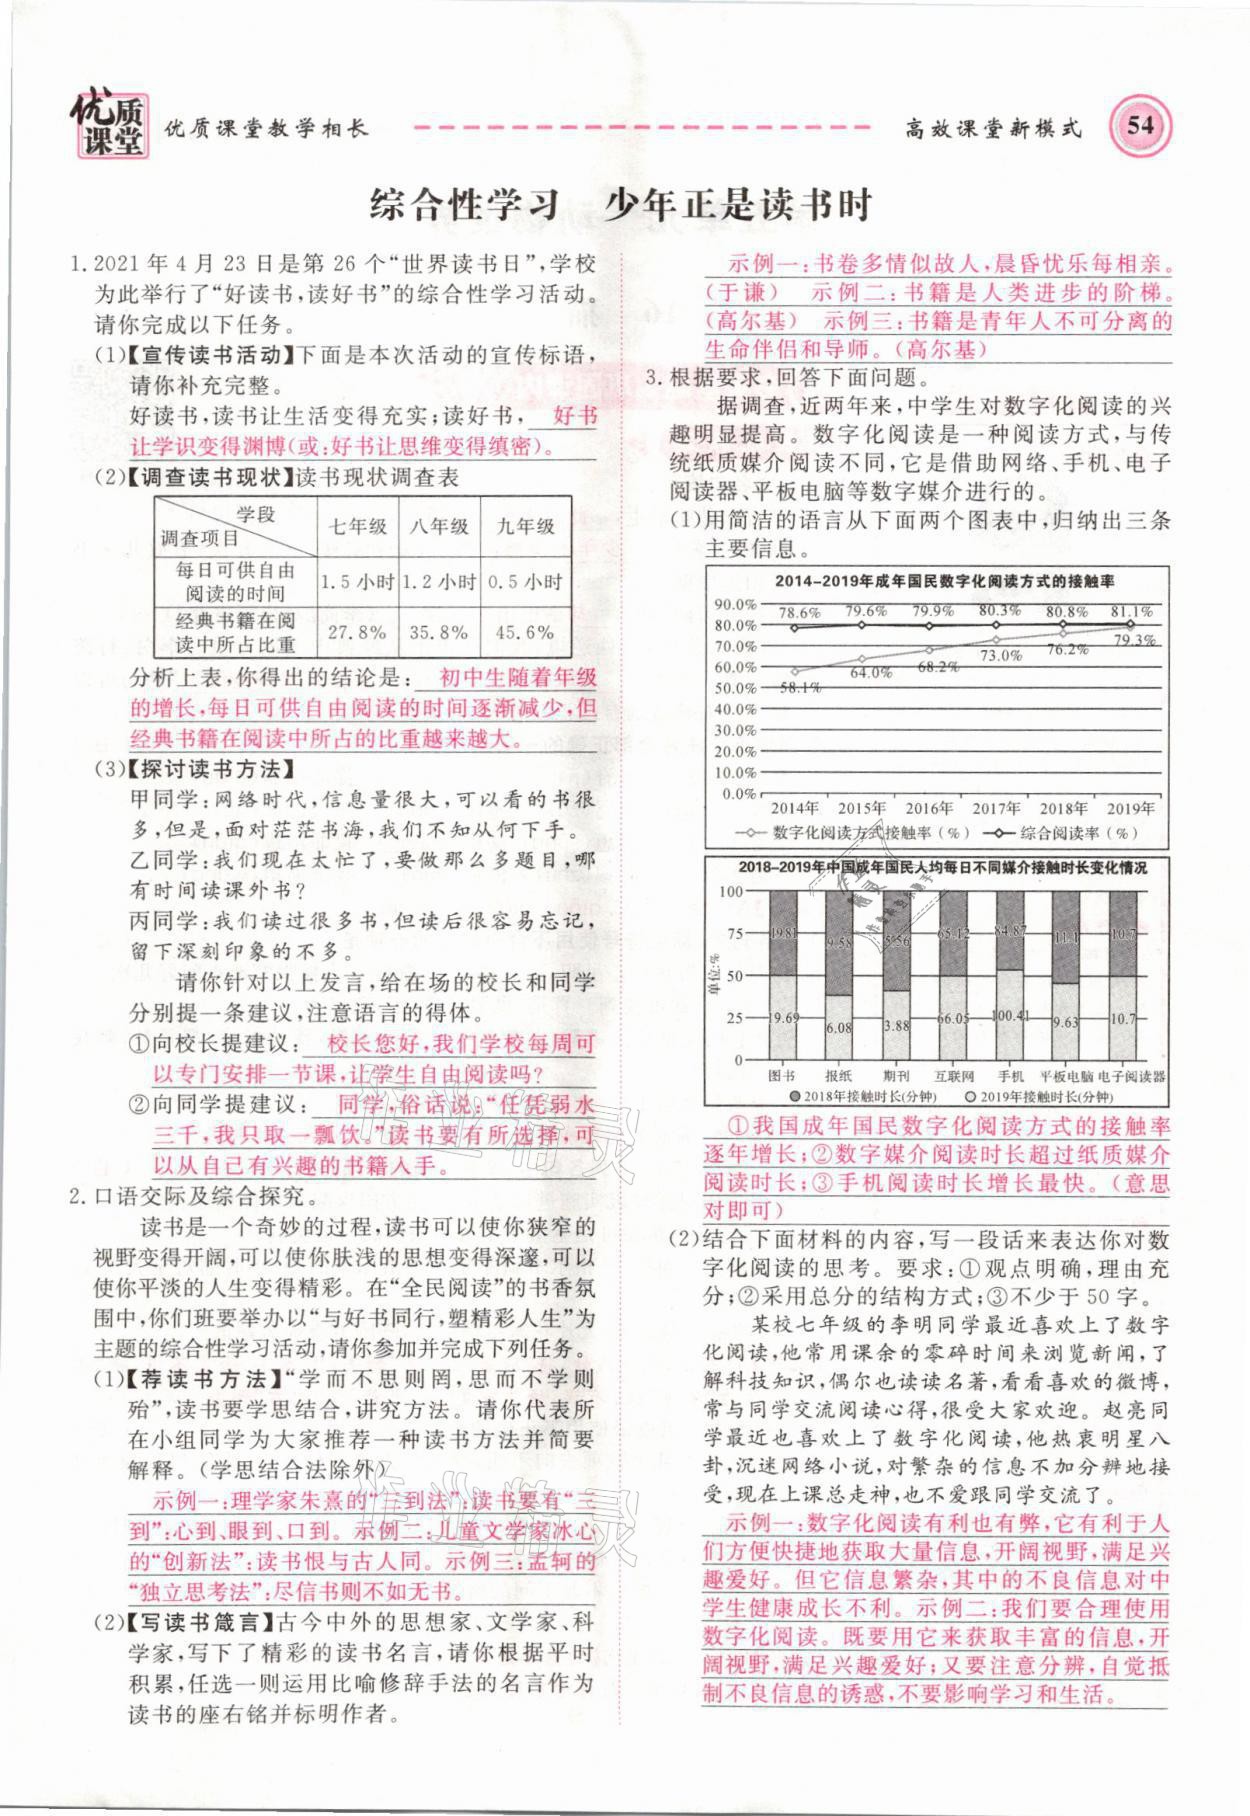 优质课堂
优质课堂教学相长
高效课堂新模式
54
综合性学习 少年正是读书时
1. 2021年4月23日是第26个“世界读书日”,学校
为此举行了“好读书,读好书”的综合性学习活动。
请你完成以下任务。
(1)【宣传读书活动】下面是本次活动的宣传标语,
请你补充完整。
好读书,读书让生活变得充实;读好书, 好书
让学识变得渊博(或:好书让思维变得缜密)。
(2)【调查读书现状】读书现状调查表
学段
调查项目
七年级 八年级 九年级
每日可供自由
阅读的时间
1.5小时 1.2小时 0.5小时
经典书籍在阅
读中所占比重
27.8% 35.8% 45.6%
分析上表,你得出的结论是: 初中生随着年级
的增长,每日可供自由阅读的时间逐渐减少,但
经典书籍在阅读中所占的比重越来越大。
(3)【探讨读书方法】
甲同学:网络时代,信息量很大,可以看的书很
多,但是,面对茫茫书海,我们不知从何下手。
乙同学:我们现在太忙了,要做那么多题目,哪
有时间读课外书?
丙同学:我们读过很多书,但读后很容易忘记,
留下深刻印象的不多。
请你针对以上发言,给在场的校长和同学
分别提一条建议,注意语言的得体。
①向校长提建议: 校长您好,我们学校每周可
以专门安排一节课,让学生自由阅读吗?
②向同学提建议: 同学,俗话说:“任凭弱水
三千,我只取一瓢饮。”读书要有所选择,可
以从自己有兴趣的书籍入手。
2. 口语交际及综合探究。
读书是一个奇妙的过程,读书可以使你狭窄的
视野变得开阔,可以使你肤浅的思想变得深邃,可以
使你平淡的人生变得精彩。在“全民阅读”的书香氛
围中,你们班要举办以“与好书同行,塑精彩人生”为
主题的综合性学习活动,请你参加并完成下列任务。
(1)【荐读书方法】“学而不思则罔,思而不学则
殆”,读书要学思结合,讲究方法。请你代表所
在小组同学为大家推荐一种读书方法并简要
解释。(学思结合法除外)
示例一:理学家朱熹的“三到法”:读书要有“三
到”:心到、眼到、口到。示例二:儿童文学家冰心
的“创新法”:读书恨与古人同。示例三:孟轲的
“独立思考法”:尽信书则不如无书。
(2)【写读书箴言】古今中外的思想家、文学家、科
学家,写下了精彩的读书名言,请你根据平时
积累,任选一则运用比喻修辞手法的名言作为
读书的座右铭并标明作者。
示例一:书卷多情似故人,晨昏忧乐每相亲。
(于谦) 示例二:书籍是人类进步的阶梯。
(高尔基) 示例三:书籍是青年人不可分离的
生命伴侣和导师。(高尔基)
3. 根据要求,回答下面问题。
据调查,近两年来,中学生对数字化阅读的兴
趣明显提高。数字化阅读是一种阅读方式,与传
统纸质媒介阅读不同,它是借助网络、手机、电子
阅读器、平板电脑等数字媒介进行的。
(1)用简洁的语言从下面两个图表中,归纳出三条
主要信息。
2014-2019年成年国民数字化阅读方式的接触率
90.0%
80.0%
70.0%
60.0%
50.0%
40.0%
30.0%
20.0%
10.0%
0.0%
78.6% 79.6% 79.9% 80.3% 80.8% 81.1%
58.1% 64.0% 68.2% 73.0% 76.2% 79.3%
2014年 2015年 2016年 2017年 2018年 2019年
数字化阅读方式接触率(%) 综合阅读率(%)
2018-2019年中国成年国民人均每日不同媒介接触时长变化情况
单位:%
100
75
50
25
0
19.81 9.58 5.56 65.12 84.87 11.1 10.7
19.69 6.08 3.88 66.05 100.41 9.63 10.7
图书 报纸 期刊 互联网 手机 平板电脑 电子阅读器
2018年接触时长(分钟) 2019年接触时长(分钟)
①我国成年国民数字化阅读方式的接触率
逐年增长;②数字媒介阅读时长超过纸质媒介
阅读时长;③手机阅读时长增长最快。(意思
对即可)
(2)结合下面材料的内容,写一段话来表达你对数
字化阅读的思考。要求:①观点明确,理由充
分;②采用总分的结构方式;③不少于50字。
某校七年级的李明同学最近喜欢上了数字
化阅读,他常用课余的零碎时间来浏览新闻,了
解科技知识,偶尔也读读名著,看看喜欢的微博,
常与同学交流阅读心得,很受大家欢迎。赵亮同
学最近也喜欢上了数字化阅读,他热衷明星八
卦,沉迷网络小说,对繁杂的信息不加分辨地接
受,现在上课总走神,也不爱跟同学交流了。
示例一:数字化阅读有利也有弊,它有利于人
们方便快捷地获取大量信息,开阔视野,满足兴
趣爱好。但它信息繁杂,其中的不良信息对中
学生健康成长不利。示例二:我们要合理使用
数字化阅读。既要用它来获取丰富的信息,开
阔视野,满足兴趣爱好;又要注意分辨,自觉抵
制不良信息的诱惑,不要影响学习和生活。
作业精灵
作业精灵